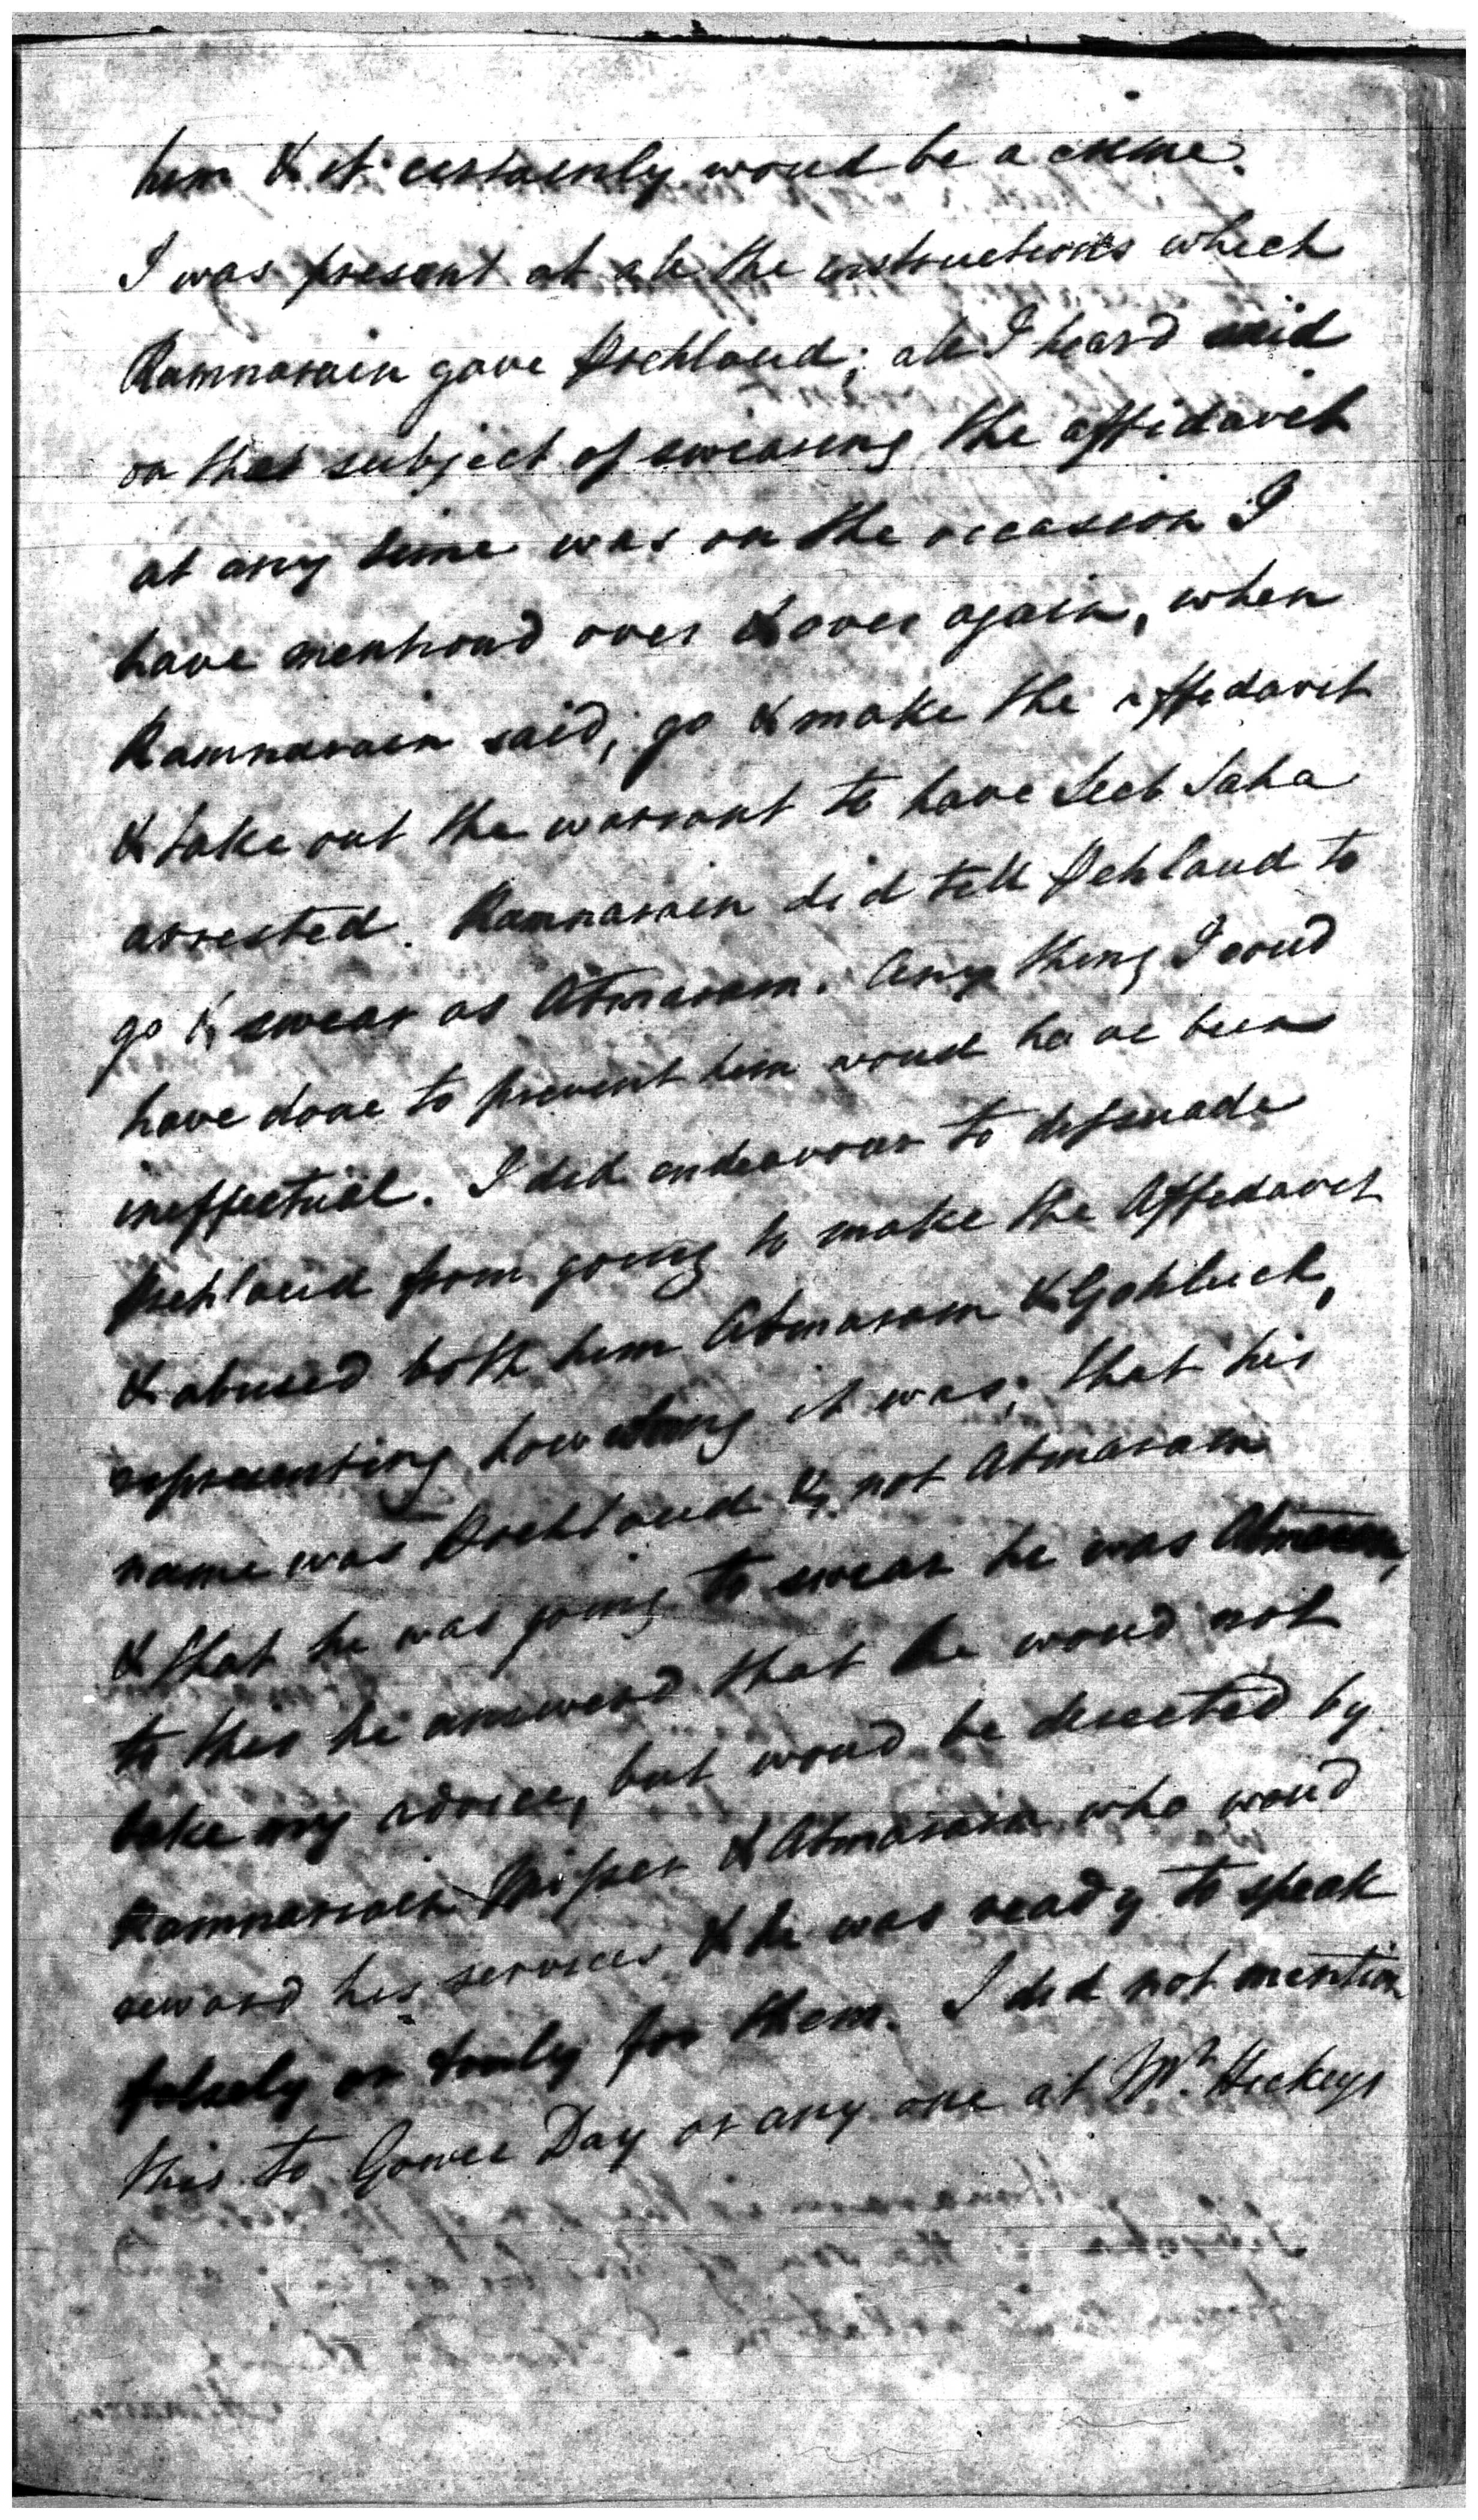 him & it certainly woud be a crime.
I was present at all the instructions which
Ramnarain gave Prehlaud; all I heard said
on that subject of swearing the affidavit
at any time was on the occasion I
have mentiond over & over again, when
Ramnarain said, go & make the affidavit
& take out the warrant to have Seeb Saha
arrested. Ramnarain did tell Prehlaud to
go & swear as Atmaram. Any thing I coud
have done to prevent him woud have been
ineffectual. I did endeavour to dissuade
Prehlaud from going to make the Affidavit
& abused both him Atmaram & Gohluck,
representing how wrong it was; that his
name was Prehlaud & not Atmaram
& that he was going to swear he was Atmaram,
to this he answerd that he woud not
take my advice, but woud be directed by
Ramnarain Misser & Atmaram who woud
reward his services & he was ready to speak
falsely or truly for them. I did not mention
this to Gowee Day or any one at Mr. Hickeys